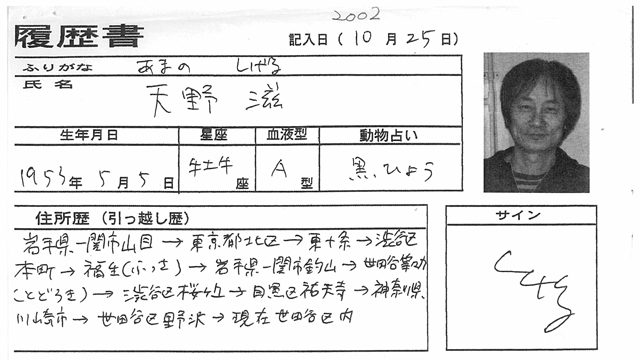 2002
履歴書
記入日(10月25日)
ふりがな あまの しげる
氏名 天野 滋
生年月日 星座 血液型 動物占い
1953年5月5日 牡牛座 A型 黒ひょう
住所歴(引っ越し歴)
岩手県一関市山目→東京都北区→東十条→渋谷区
本町→福生(ふっさ)→岩手県一関市釣山→世田谷等々力
(とどろき)→渋谷区桜ヶ丘→目黒区祐天寺→神奈川県
川崎市→世田谷区野沢→現在世田谷区内
サイン